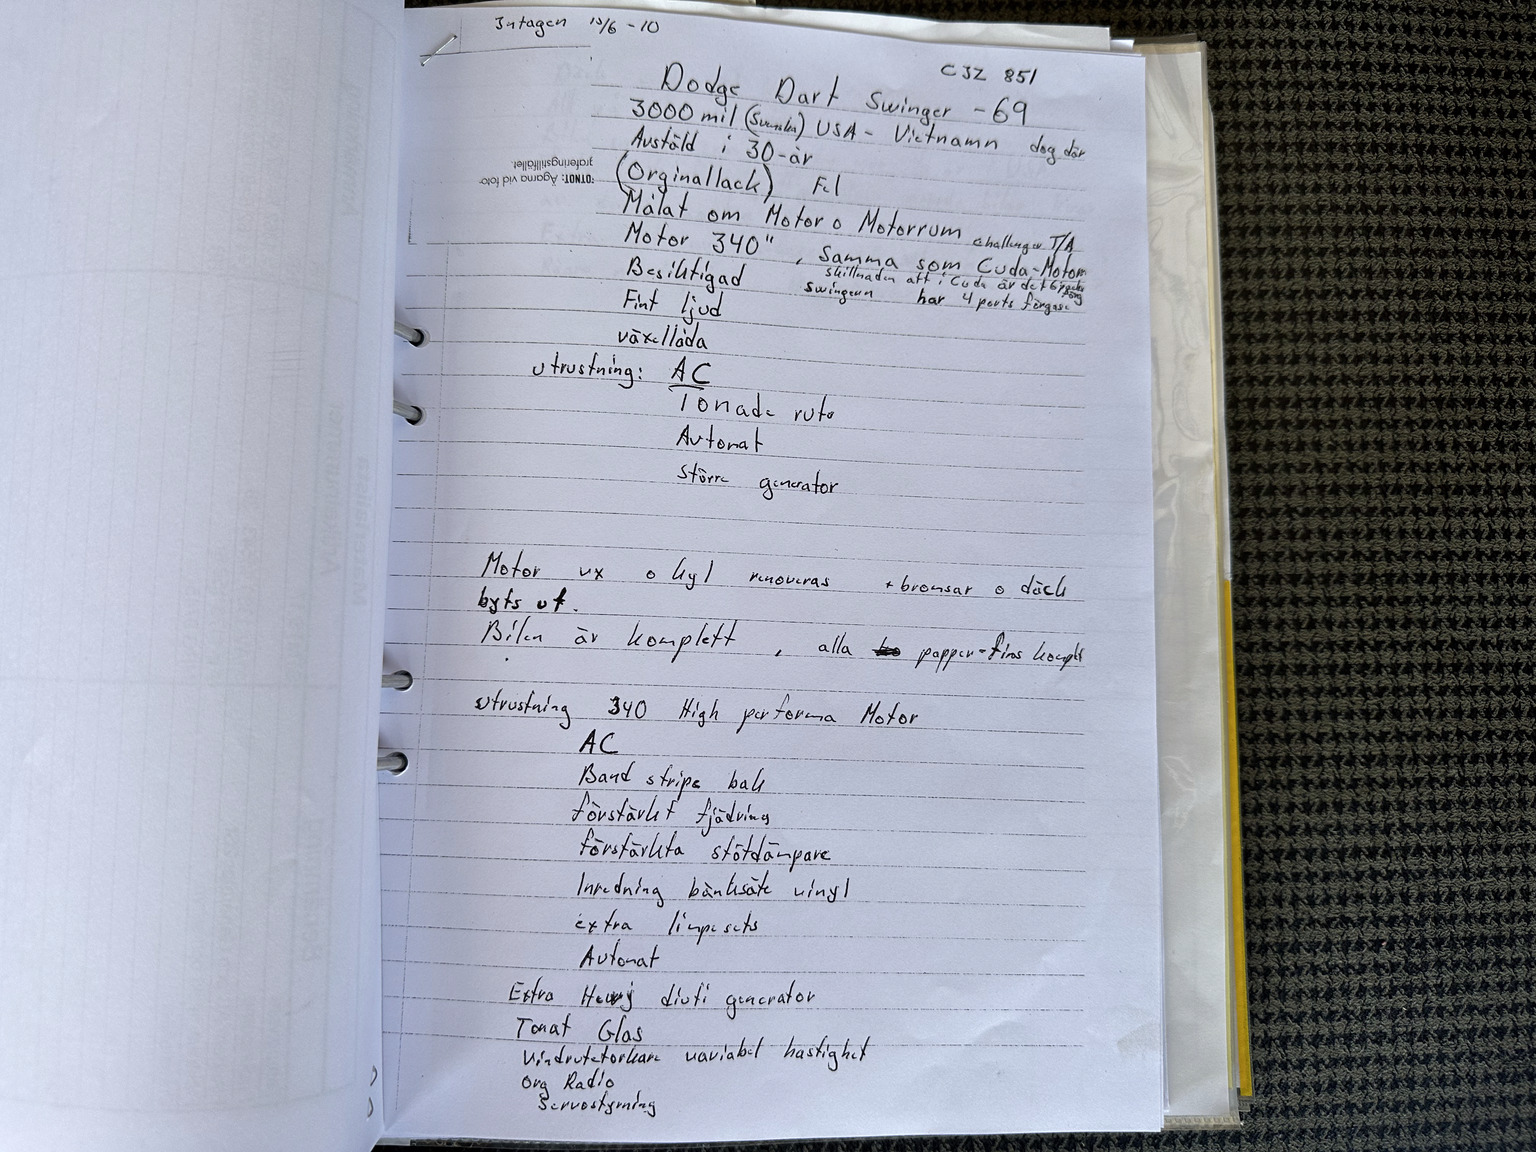 Intagen 15/6 - 10
CJZ 851
Dodge Dart Swinger - 69
3000 mil (Svenska) USA - Vietnamn dog där
Avställd i 30-år
(Orginallack) Fel
Målat om Motor o Motorrum challenger T/A
Motor 340" , Samma som Cuda-Motorn
skillnaden att i Cuda är det 6 packs
swingern har 4 ports förgasa
Besiktigad
Fint ljud
växellåda
utrustning: AC
Tonade ruto
Automat
större generator
FOTNOT: Ägarna vid foto-
graferingstillfället.
Motor vx o kyl renoveras + bromsar o däck
byts ut.
Bilen är komplett , alla papper finns komplet
utrustning 340 High performa Motor
AC
Band stripe bak
förstärkt fjädring
förstärkta stötdämpare
Inredning bänksäte vinyl
extra
Automat
Extra Hewvj diuti generator
Tonat Glas
vindrutetorkare variabel hastighet
Org Radio
Servostyrning